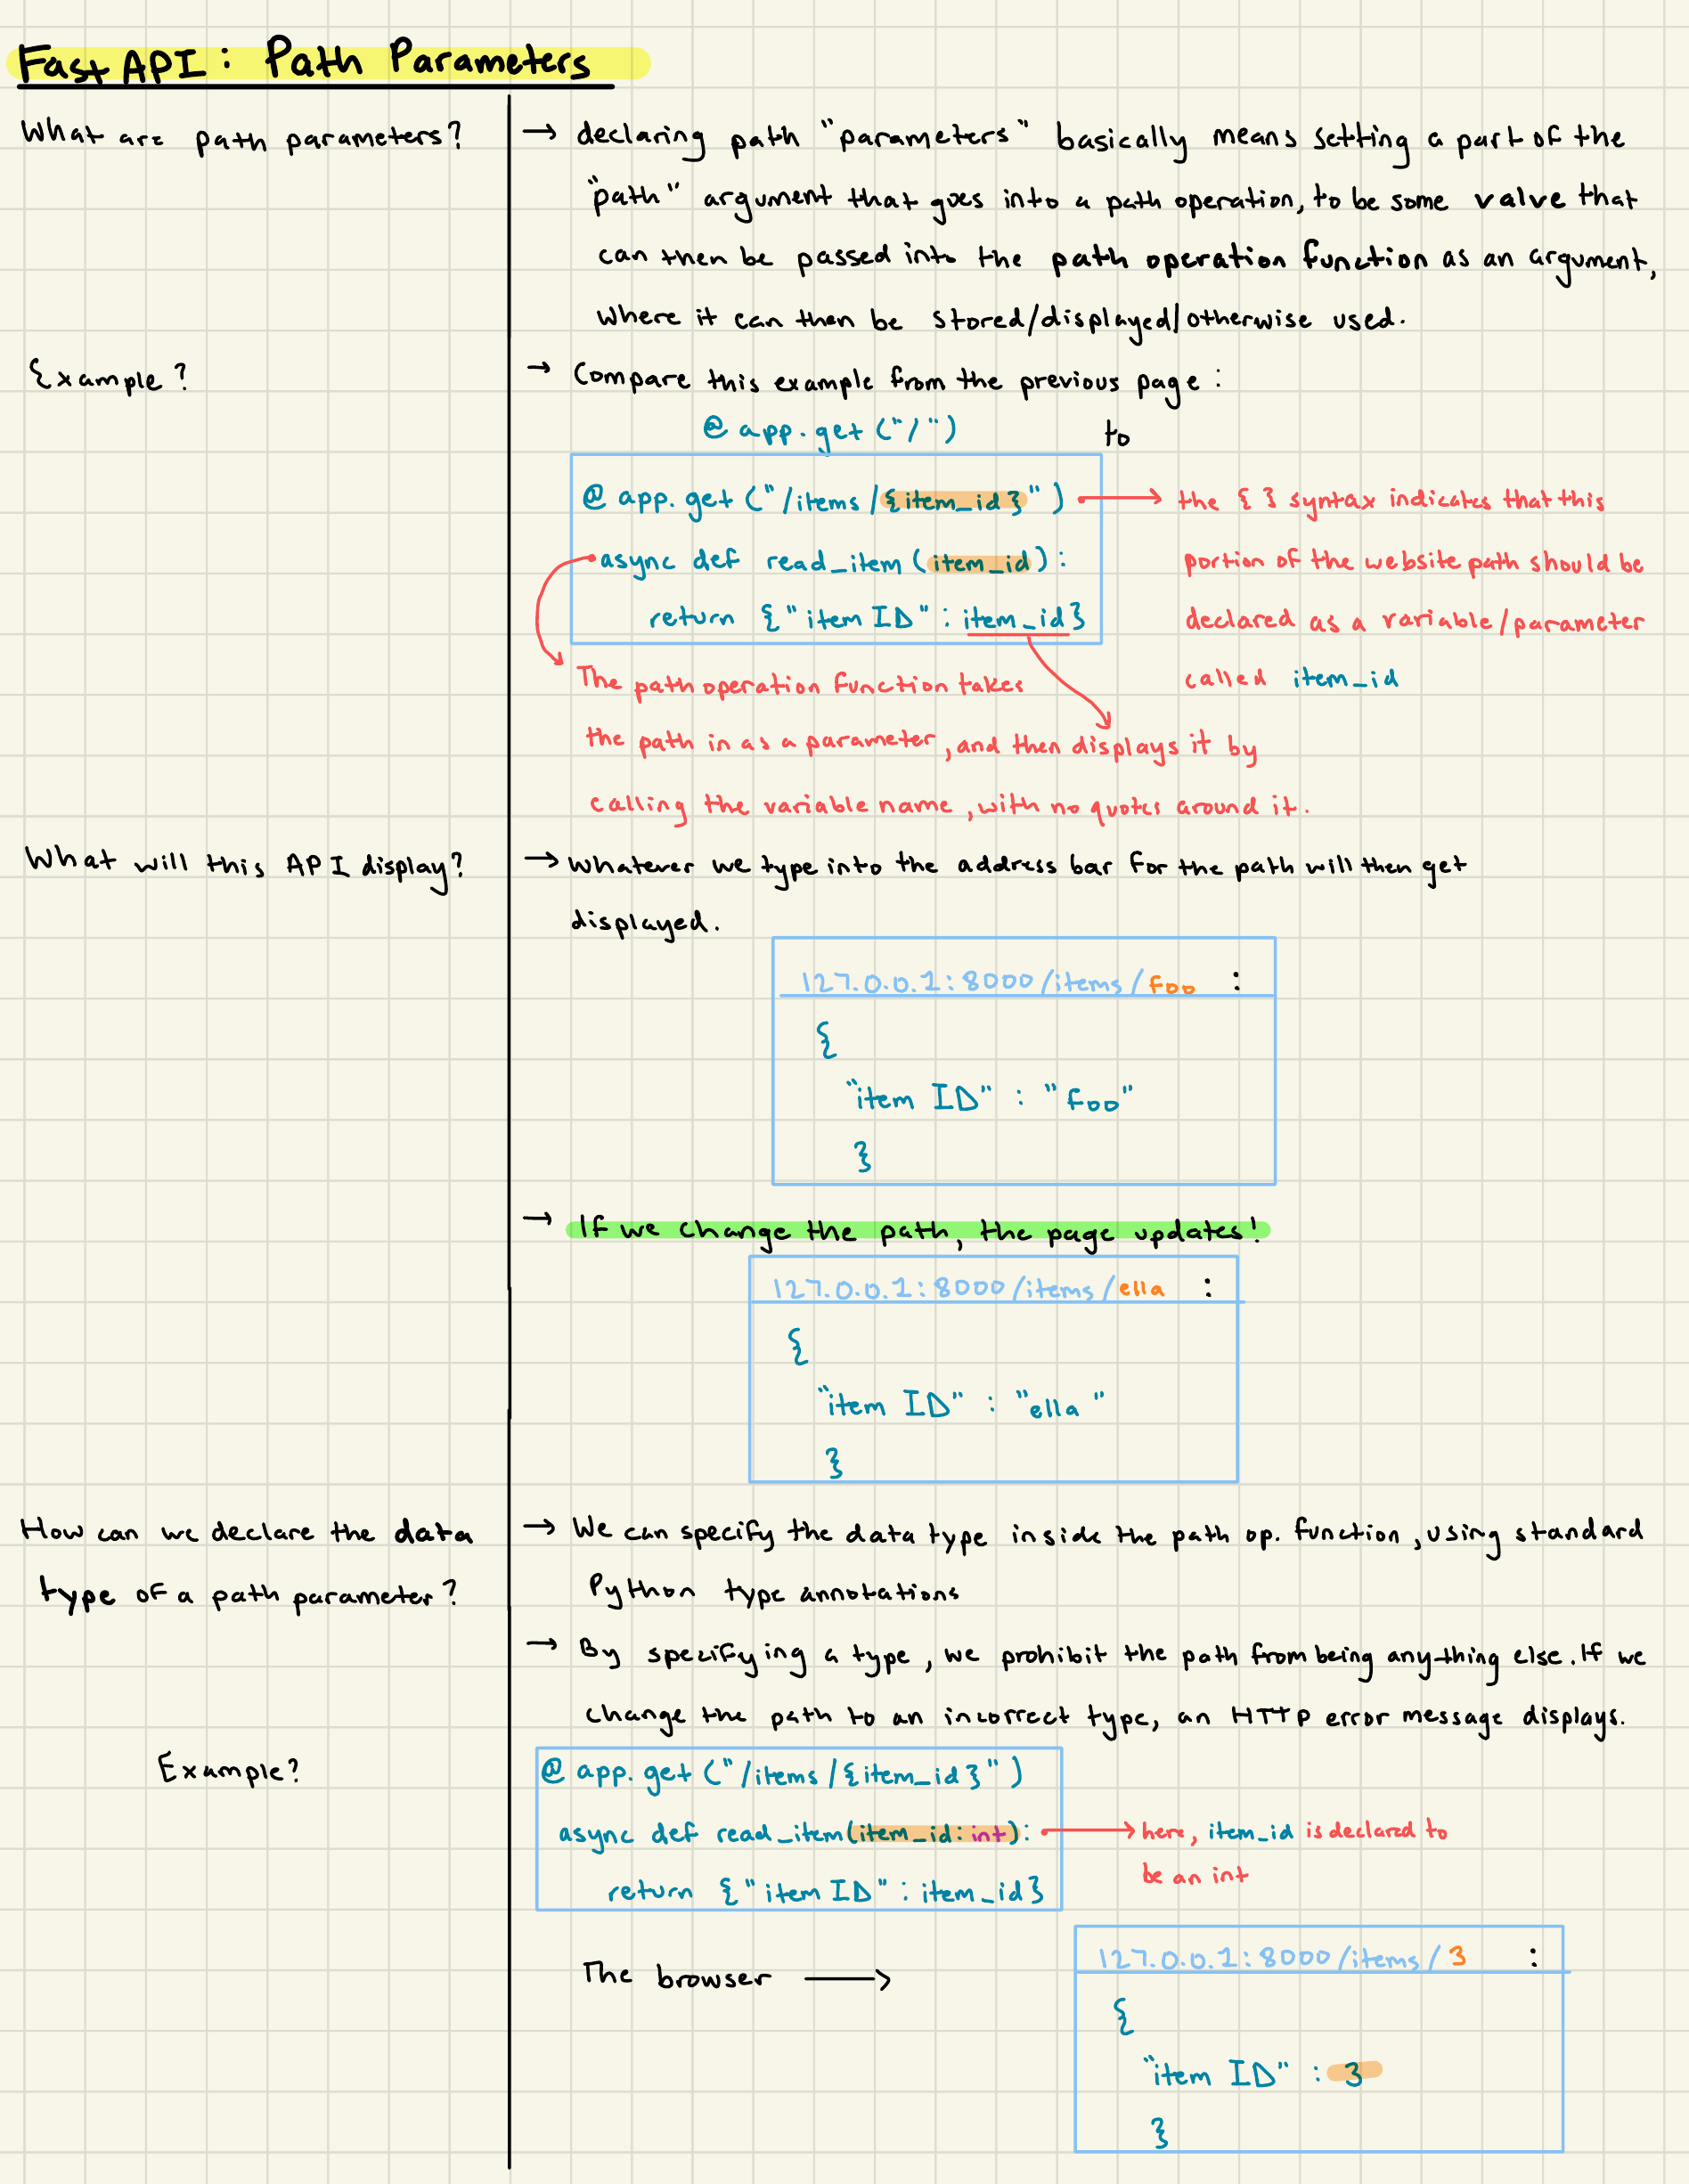 FastAPI: Path Parameters
What are path parameters?
→ declaring path "parameters" basically means setting a part of the
"path" argument that goes into a path operation, to be some value that
can then be passed into the path operation function as an argument,
where it can then be stored/displayed/otherwise used.
Example?
→ Compare this example from the previous page:
@app.get("/") to
@app.get("/items/{item_id}")
async def read_item(item_id):
return {"item ID": item_id}
the { } syntax indicates that this
portion of the website path should be
declared as a variable/parameter
called item_id
The path operation function takes
the path in as a parameter, and then displays it by
calling the variable name, with no quotes around it.
What will this API display?
→ Whatever we type into the address bar for the path will then get
displayed.
127.0.0.1:8000/items/foo :
{
"item ID" : "foo"
}
→ If we change the path, the page updates!
127.0.0.1:8000/items/ella :
{
"item ID" : "ella"
}
How can we declare the data
type of a path parameter?
→ We can specify the data type inside the path op. function, using standard
Python type annotations
→ By specifying a type, we prohibit the path from being anything else. If we
change the path to an incorrect type, an HTTP error message displays.
Example?
@app.get("/items/{item_id}")
async def read_item(item_id: int):
return {"item ID": item_id}
here, item_id is declared to
be an int
The browser →
127.0.0.1:8000/items/3 :
{
"item ID" : 3
}